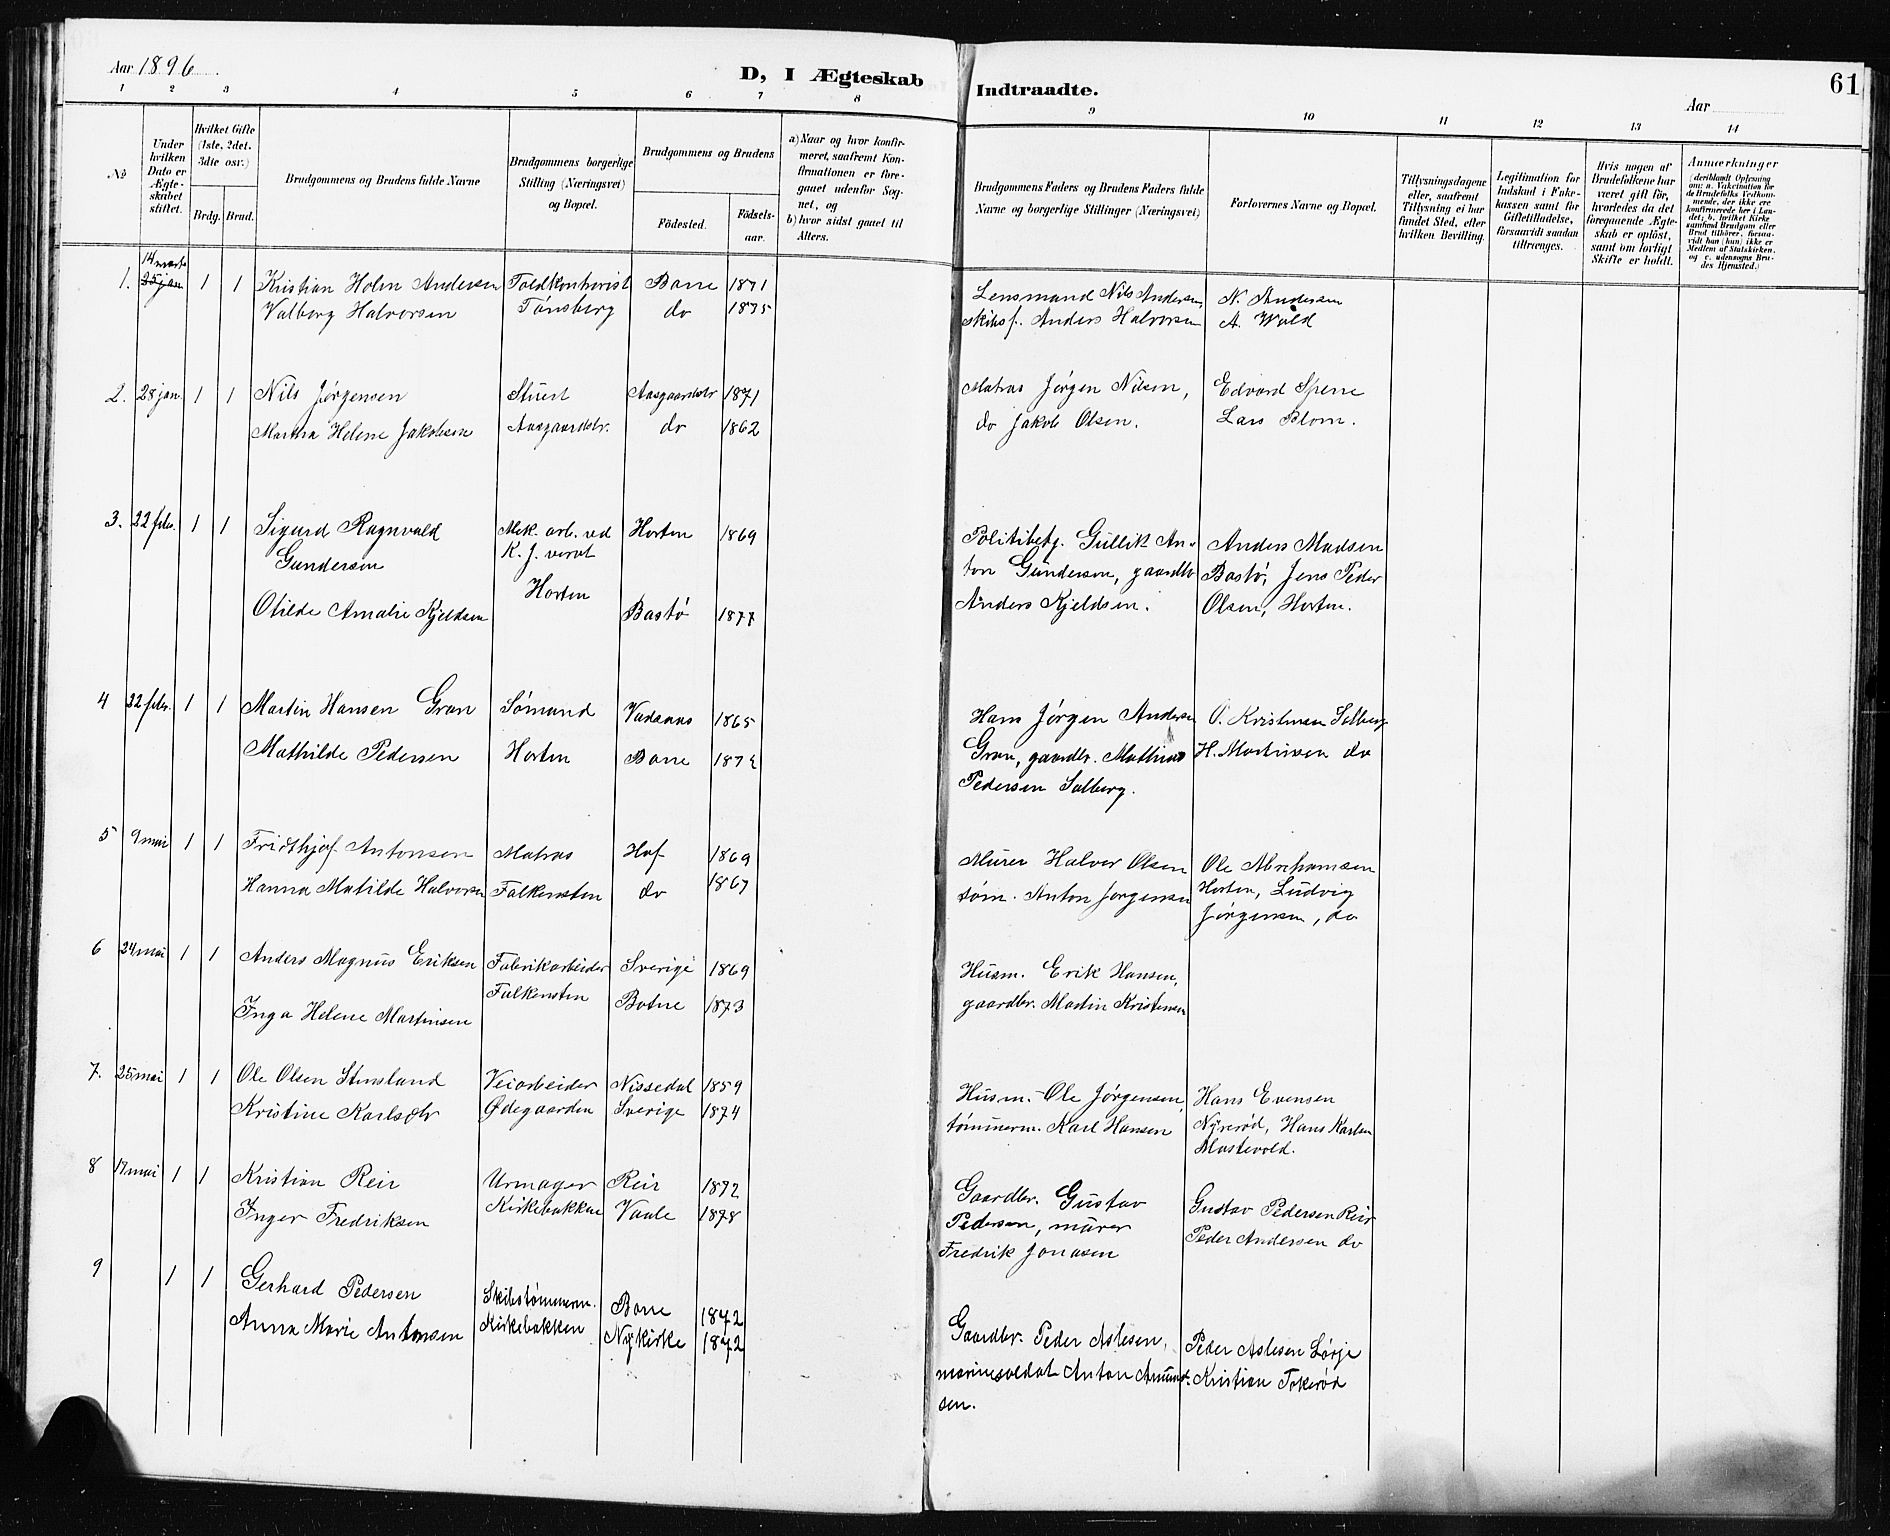 Aar 1896
D, I Ægteskab Indtraadte.
Aar
61
1 2 3 4 5 6 7 8 9 10 11 12 13 14
No
Under hvilken Dato er Ægteskabet stiftet.
Hvilket Gifte (1ste, 2det, 3die osv.)
Brdg. Brud.
Brudgommens og Brudens fulde Navne
Brudgommens borgerlige Stilling (Næringsvei) og Bopæl.
Brudgommens og Brudens
Fødested. Fødselsaar.
a) Naar og hvor konfirmeret, saafremt Konfirmationen er foregaaet udenfor Sognet, og
b) hvor sidst gaaet til Alters.
Brudgommens Faders og Brudens Faders fulde Navne og borgerlige Stillinger (Næringsvei)
Forlovernes Navne og Bopæl.
Tillysningsdagene eller, saafremt Tillysning ei har fundet Sted, efter hvilken Bevilling.
Legitimation for Indskud i Enkekassen samt for Giftetilladelse, forsaavidt saadan tiltrænges.
Hvis nogen af Brudefolkene har været gift før, hvorledes da det foregaaende Ægteskab er opløst, samt om lovligt Skifte er holdt.
Anmærkninger
1. 14 marts 25 jan 1 1 Kristian Holm Andersen Toldkontorist Borre 1871 Lensmand Nils Andersen, N. Andersen
Valborg Halvorsen Tønsberg do 1875 skibsf. Anders Halvorsen A. Wold
2. 28 jan. 1 1 Nils Jørgensen Stuert Aasgaardstr 1871 Matros Jørgen Nilsen, Edvard Sperre
Martha Helene Jakobsen Aasgaardstr. do 1862 do Jakob Olsen. Lars Blom.
3. 22 febr. 1 1 Sigurd Ragnvald Mek. arb. ved Horten 1869 Politibetj. Gullik An- Anders Madsen
Gundersen K. J. verst Horten ton Gundersen, gaardbr Bastø, Jens Peder
Otilde Amalie Kjeldsen Bastø 1877 Anders Kjeldsen. Olsen, Horten.
4 22 febr. 1 1 Martin Hansen Gran Sømand Vadsaas 1865 Hans Jørgen Andersen O. Kristensen Solberg
Mathilde Pedersen Horten Borre 1874 Gran, gaardbr. Mathias H. Martinsen do
Pedersen Solberg.
5 9 mai 1 1 Fridthjof Antonsen Matros Hof 1869 Murer Halvor Olsen Ole Abrahamsen
Hanna Matilde Halvorsen Falkensten do 1867 tøm. Anton Jørgensen Horten, Ludvig
Jørgensen, do
6 24 mai 1 1 Anders Magnus Eriksen Fabrikarbeider Sverige 1869 Husm. Erik Hansen,
Inga Helene Martinsen Falkensten Botne 1873 gaardbr. Martin Kristensen
7. 25 mai 1 1 Ole Olsen Stensland Veiarbeider Nissedal 1859 Husm. Ole Jørgensen, Hans Evensen
Kristine Karlsdtr Ødegaarden Sverige 1874 tømmerm. Karl Hansen Nyrerød, Hans Karlsen
Mostevold.
8 17 mai 1 1 Kristian Reir Urmager Reir 1872 Gaardbr. Gustav Gustav Pedersen Reir
Inger Fredriksen Kirkebakken Vaale 1878 Pedersen, murer Peder Andersen do
Fredrik Jonasen
9 1 1 Gerhard Pedersen Skibstømmerm. Borre 1872 Gaardbr. Peder Aslesen, Peder Aslesen Lørje
Anna Marie Antonsen Kirkebakken Nykirke 1872 marinesoldat Anton Amund- Kristian Tokerød
sen.